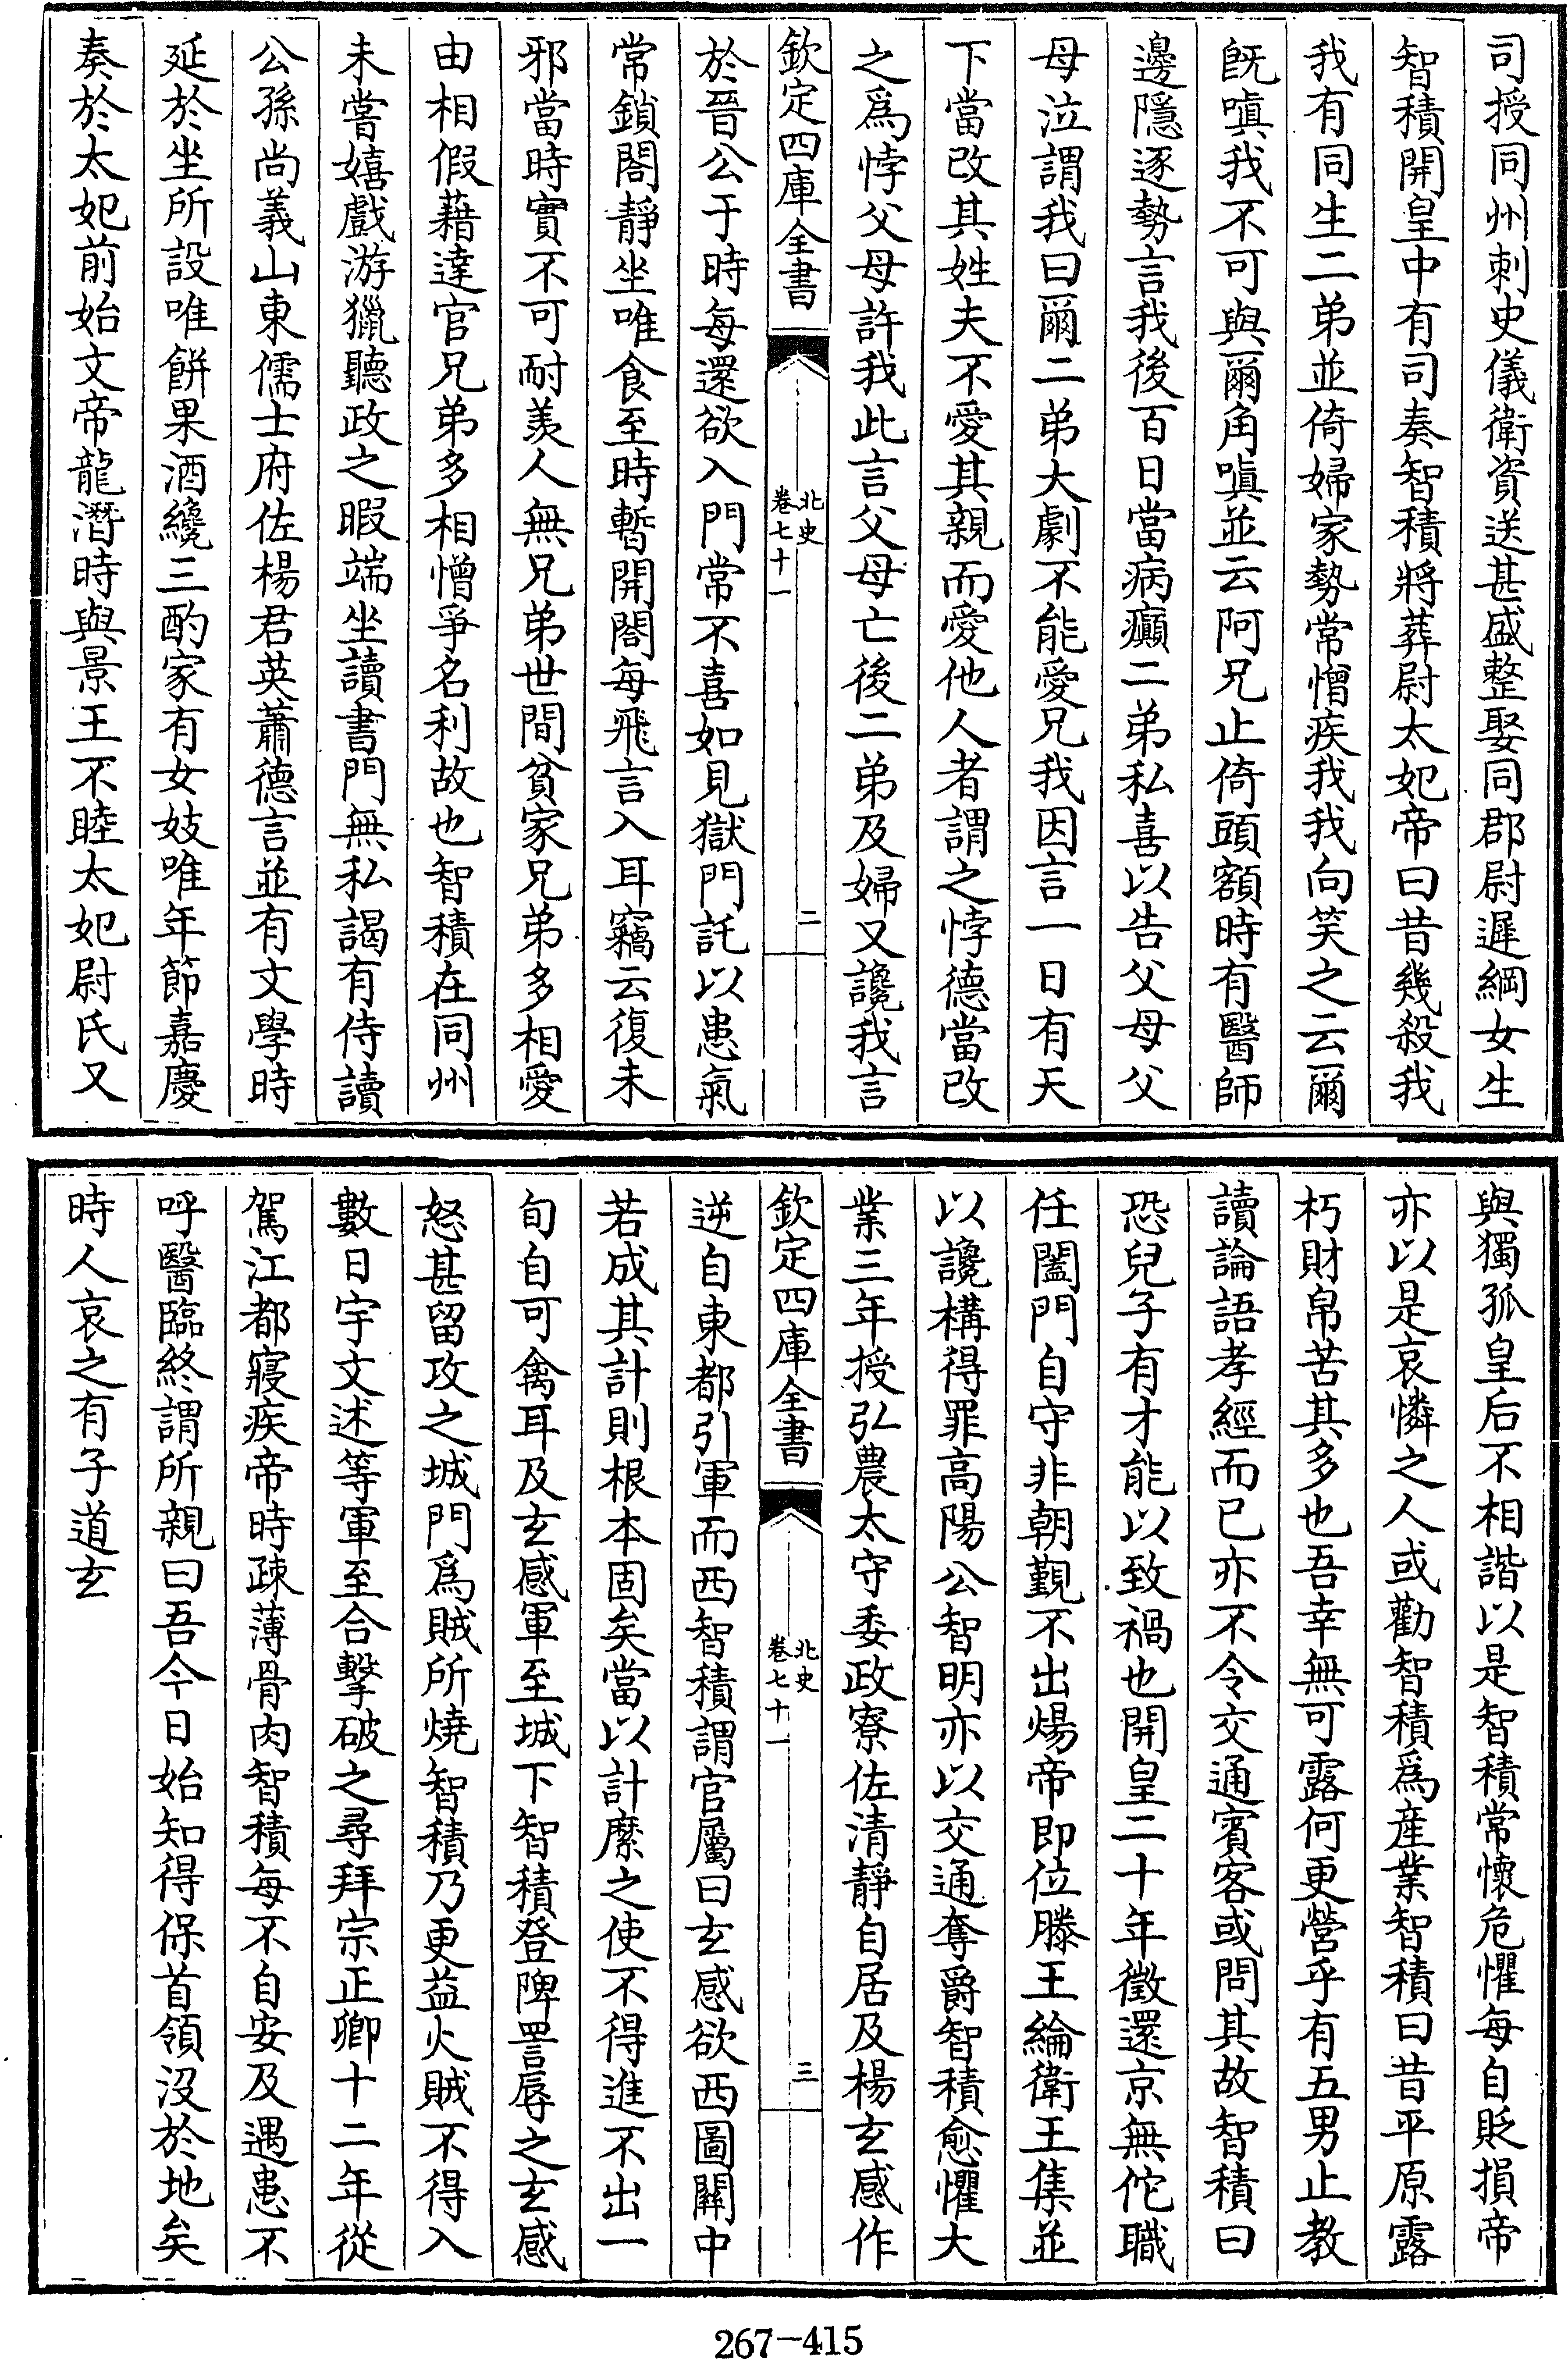 司授同州刺史儀衛資送甚盛整娶同郡尉遲綱女生
智積開皇中有司奏智積將葬尉太妃帝曰昔幾殺我
我有同生二弟並倚婦家勢常憎疾我我向笑之云爾
旣嗔我不可與爾角嗔並云阿兄止倚頭額時有醫師
邊隱逐勢言我後百日當病癲二弟私喜以告父母父
母泣謂我曰爾二弟大劇不能愛兄我因言一日有天
下當改其姓夫不愛其親而愛他人者謂之悖德當改
之爲悖父母許我此言父母亡後二弟及婦又讒我言
欽定四庫全書
北史
卷七十一
二
於晉公于時每還欲入門常不喜如見獄門託以患氣
常鎖閤靜坐唯食至時暫開閤每飛言入耳竊云復未
邪當時實不可耐羨人無兄弟世間貧家兄弟多相愛
由相假藉達官兄弟多相憎爭名利故也智積在同州
未嘗嬉戲游獵聽政之暇端坐讀書門無私謁有侍讀
公孫尚義山東儒士府佐楊君英蕭德言並有文學時
延於坐所設唯餅果酒纔三酌家有女妓唯年節嘉慶
奏於太妃前始文帝龍潛時與景王不睦太妃尉氏又
與獨孤皇后不相諧以是智積常懷危懼每自貶損帝
亦以是哀憐之人或勸智積爲產業智積曰昔平原露
朽財帛苦其多也吾幸無可露何更營乎有五男止教
讀論語孝經而已亦不令交通賓客或問其故智積曰
恐兒子有才能以致禍也開皇二十年徵還京無佗職
任闔門自守非朝覲不出煬帝即位滕王綸衛王集並
以讒構得罪高陽公智明亦以交通奪爵智積愈懼大
業三年授弘農太守委政寮佐清靜自居及楊玄感作
欽定四庫全書
北史
卷七十一
三
逆自東都引軍而西智積謂官屬曰玄感欲西圖關中
若成其計則根本固矣當以計縻之使不得進不出一
旬自可禽耳及玄感軍至城下智積登陴詈辱之玄感
怒甚留攻之城門爲賊所燒智積乃更益火賊不得入
數日宇文述等軍至合擊破之尋拜宗正卿十二年從
駕江都寢疾帝時疎薄骨肉智積每不自安及遇患不
呼醫臨終謂所親曰吾今日始知得保首領沒於地矣
時人哀之有子道玄
267-415